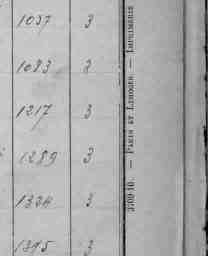 1037 3
1083 2
1217 3
1289 3
1334 3
1345 3
3709-10. — PARIS ET LIMOGES. — IMPRIMERIE